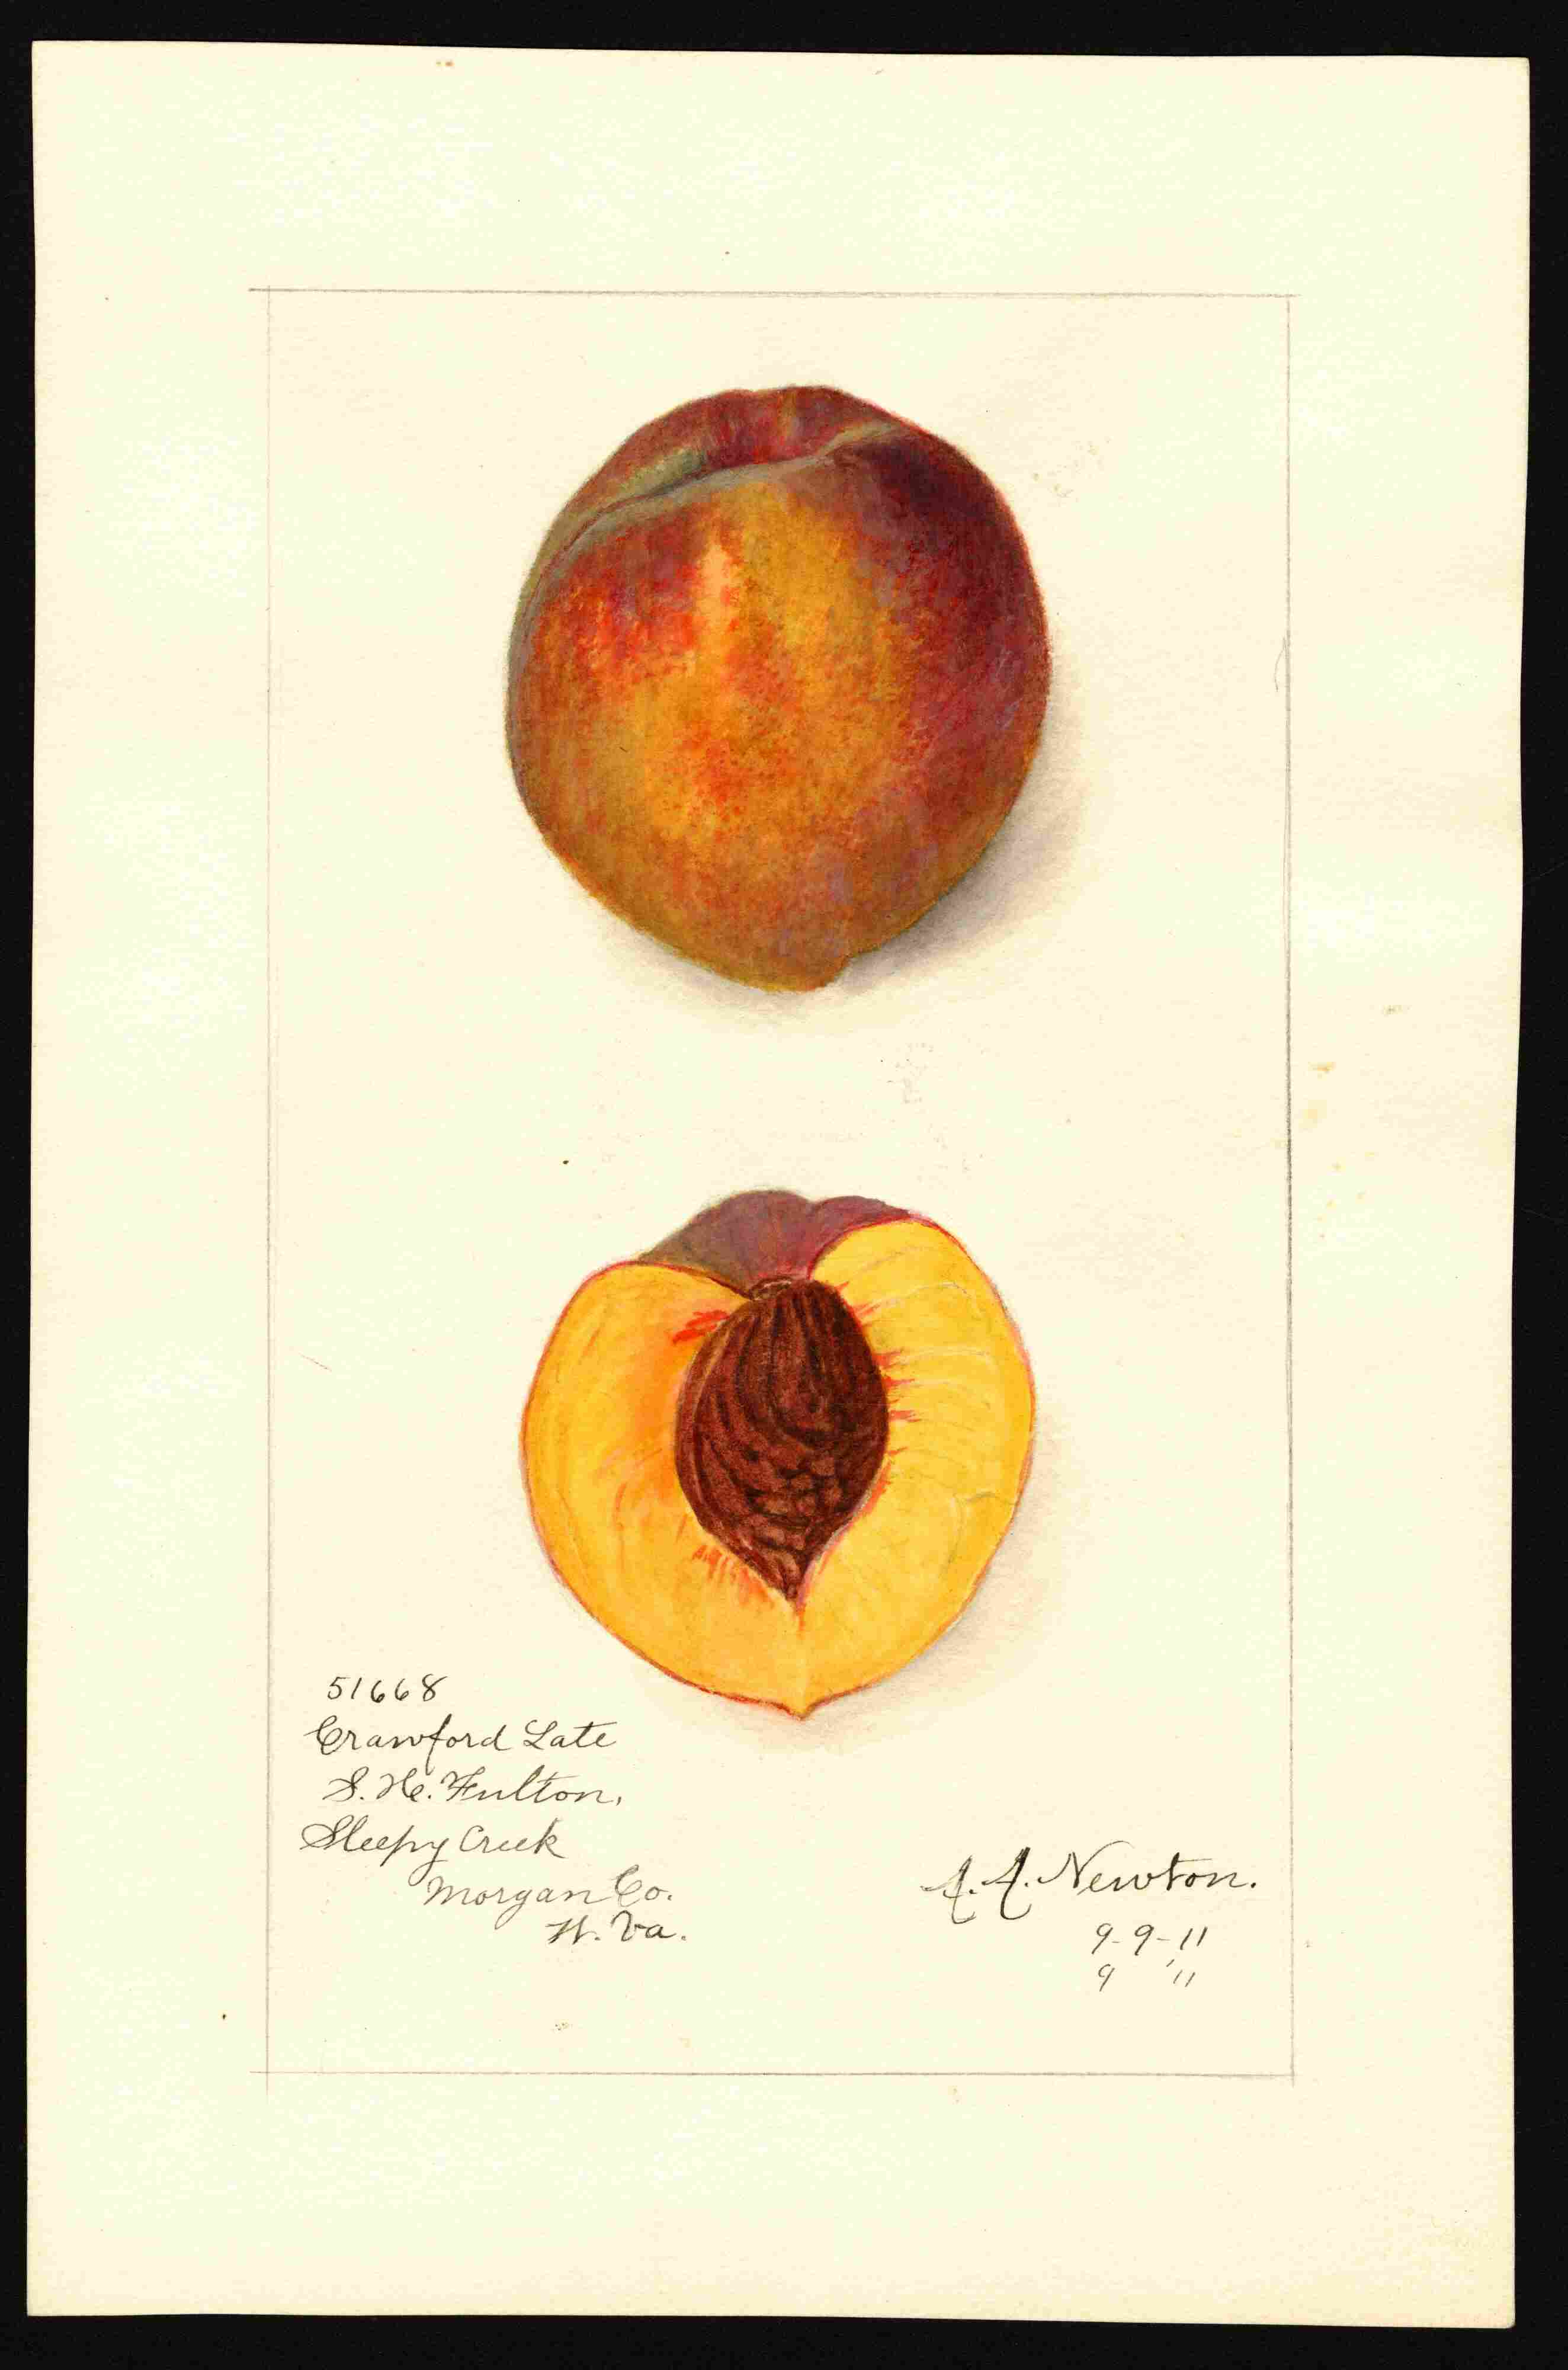 51668
Crawford Late
S. H. Fulton.
Sleepy Creek
Morgan Co.
W. Va.
A. A. Newton.
9-9-11
9 11